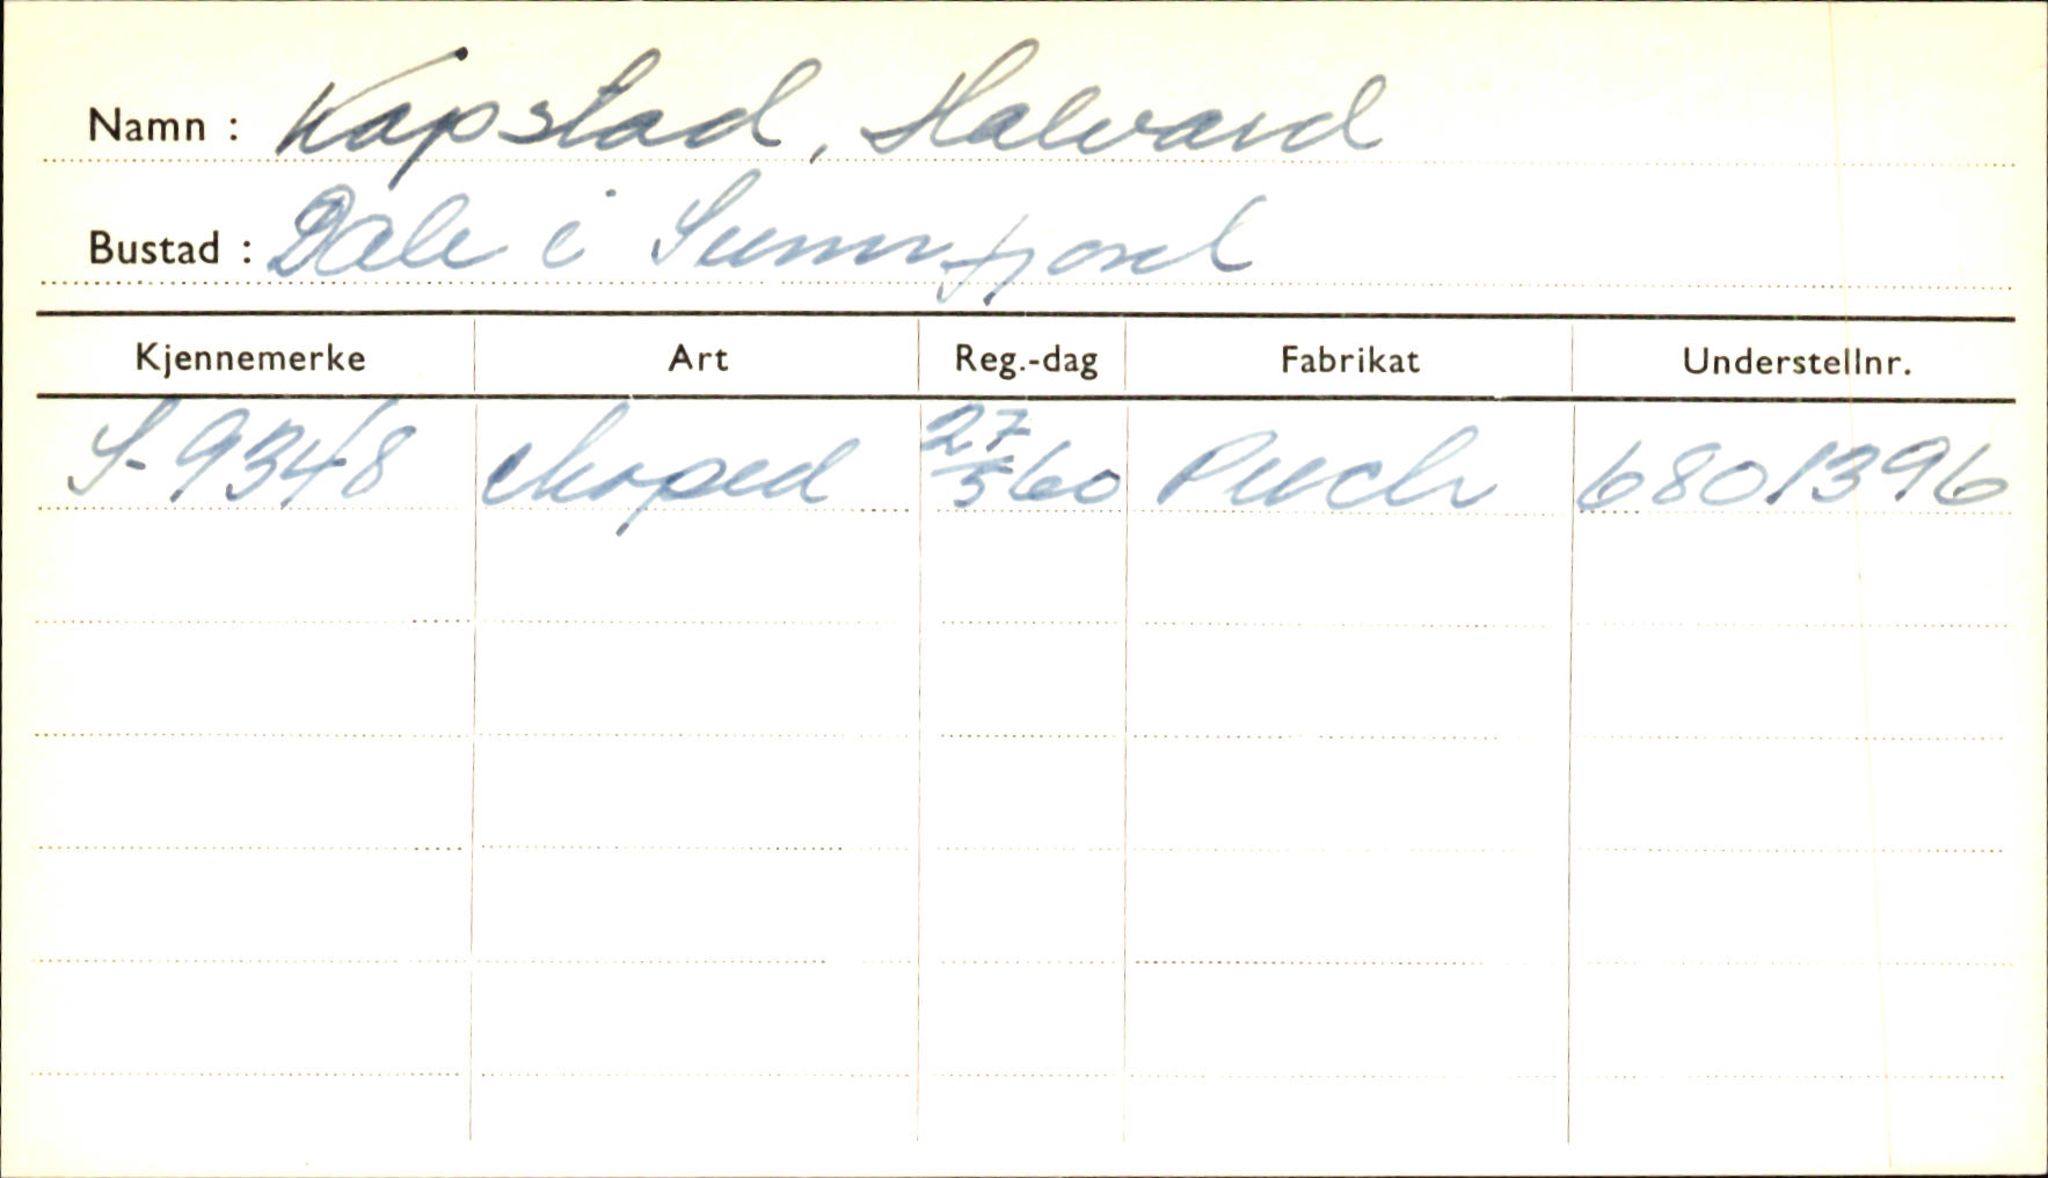 Namn : Kapstad, Halvard
Bustad : Dale i Sunnfjord
Kjennemerke Art Reg.-dag Fabrikat Understellnr.
S-9348 Moped 27/5 60 Puch 6801396